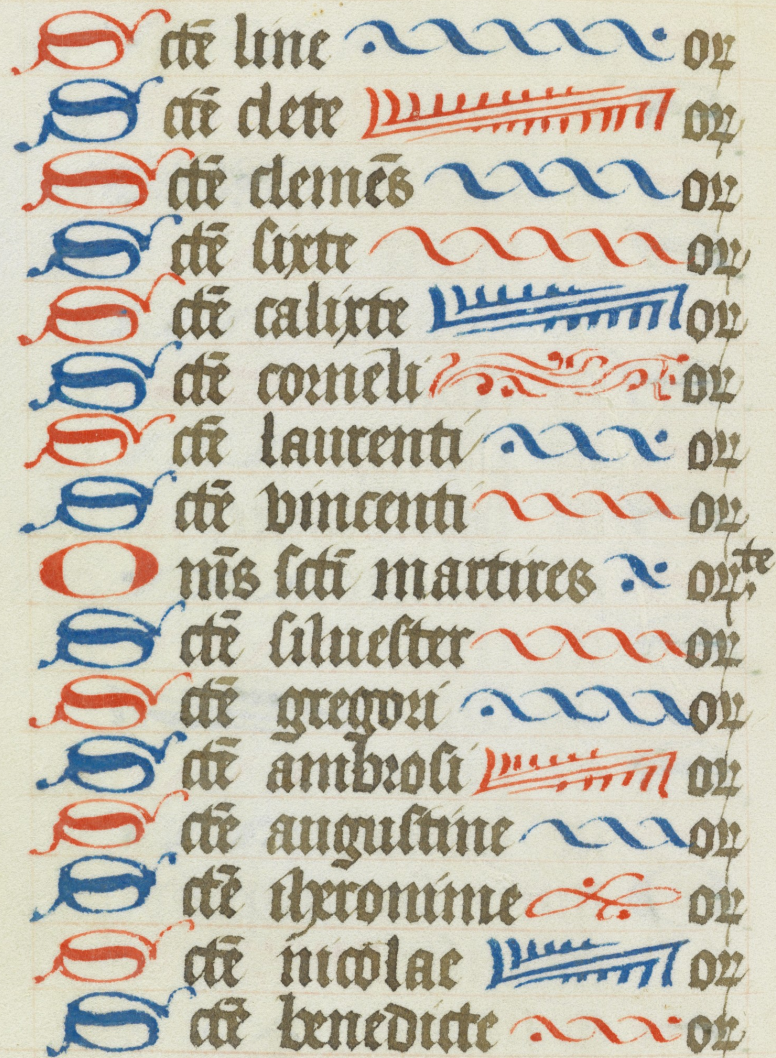 Sctē line or
Sctē clete or
Sctē clemēs or
Sctē sixte or
Sctē calixte or
Sctē corneli or
Sctē laurenti or
Sctē vincenti or
Om̄s scti martires orte
Sctē siluester or
Sctē gregori or
Sctē ambrosi or
Sctē augustine or
Sctē iheronime or
Sctē nicolae or
Sctē benedicte or